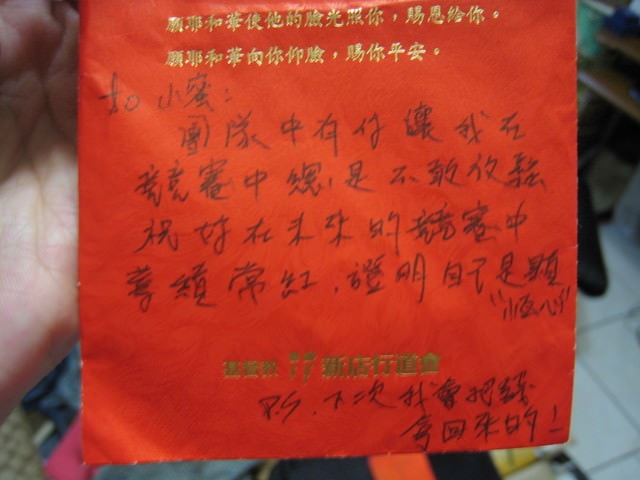 願耶和華使他的臉光照你，賜恩給你。
願耶和華向你仰臉，賜你平安。
To 小蜜：
團隊中有你讓我在
競賽中總是不敢放鬆
祝妳在未來的競賽中
業績常紅，證明自己是顆
"恒心"
基督教 新店行道會
P.S. 下次我會把錢
拿回來的！